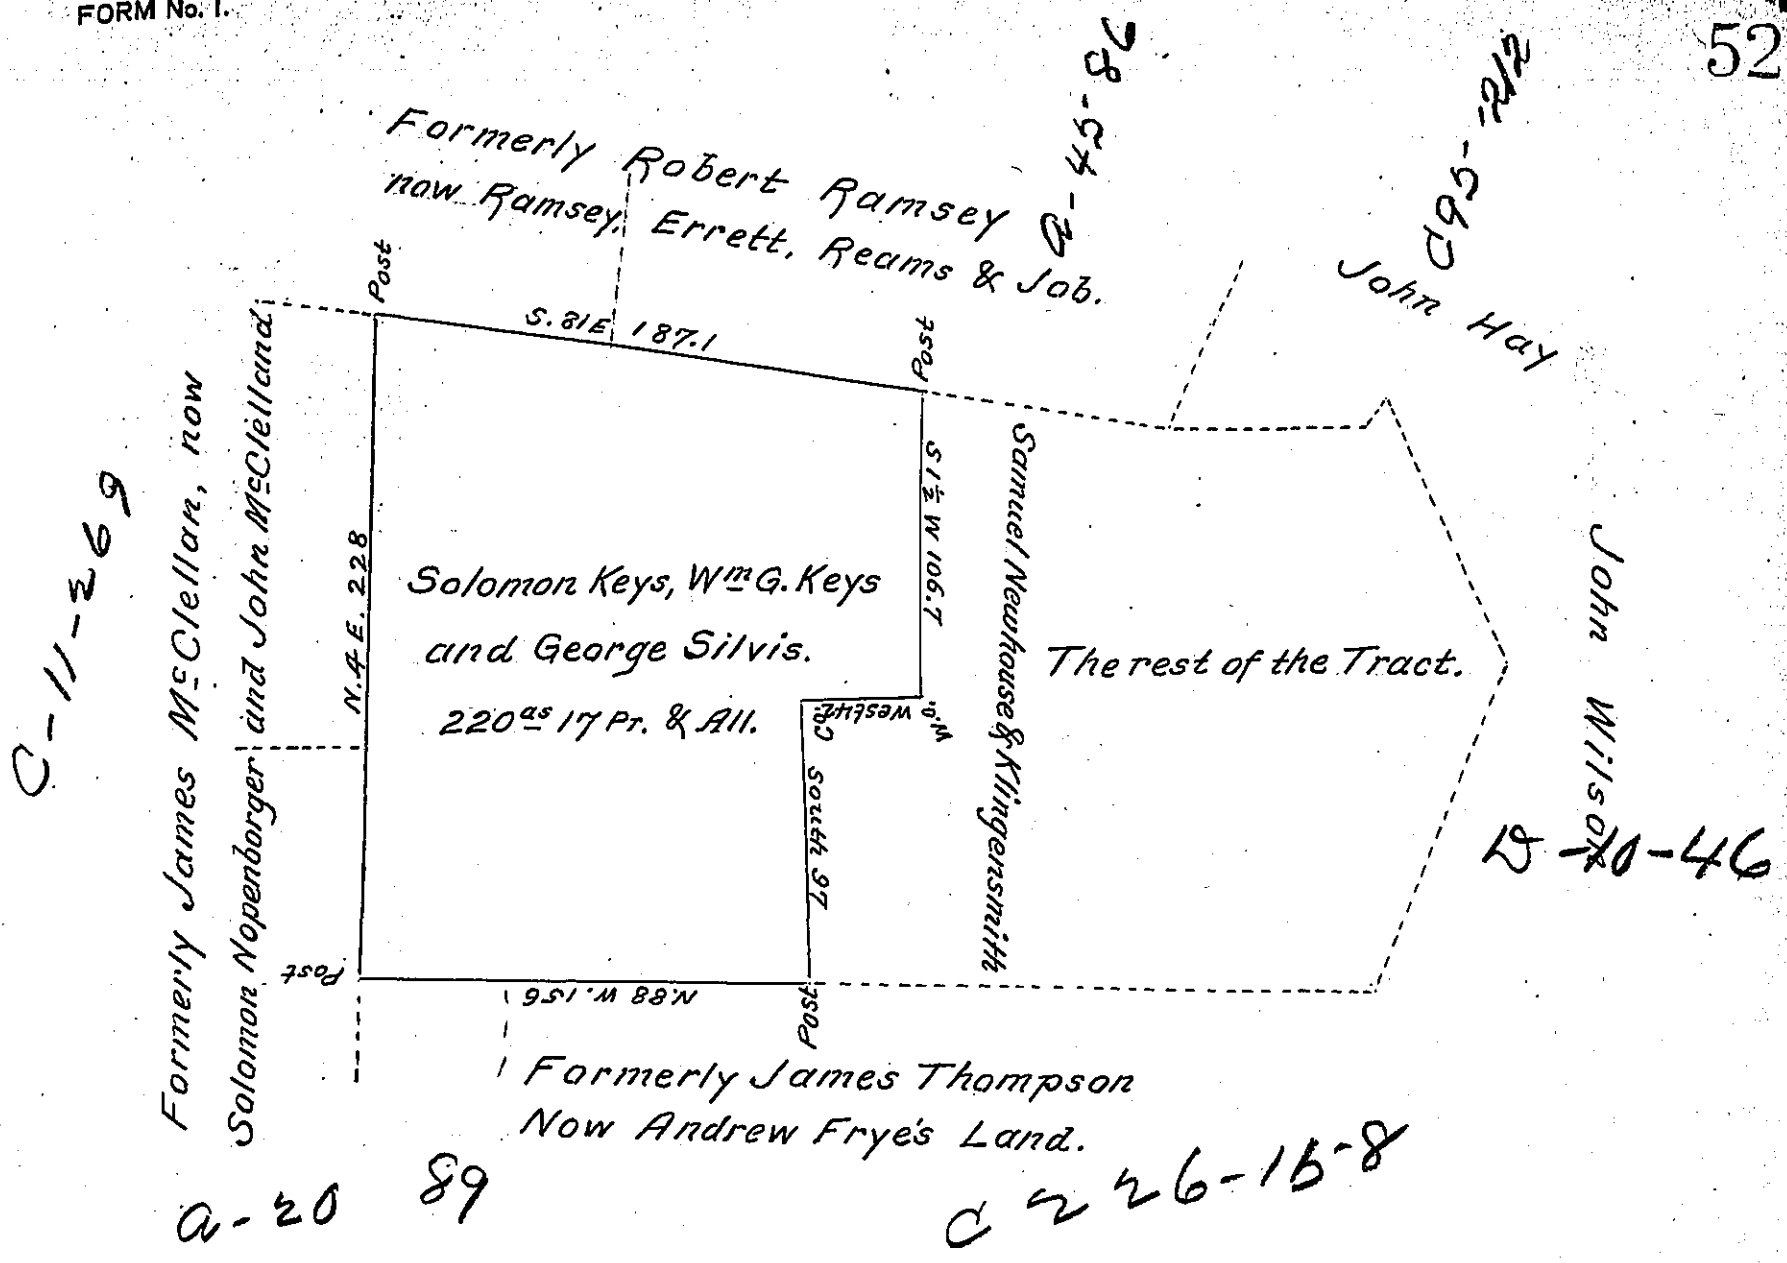 FORM No. 1.
52
Formerly Robert Ramsey
now Ramsey, Errett, Reams & Job.
a-45-86
C95-212
John Hay
Post
S. 81 E 187.1
Post
Formerly James McClellan, now
Solomon Nopenborger and John McClelland
C-11-269
N. 4 E. 228
Solomon Keys, Wm G. Keys
and George Silvis.
220as 17 Pr. & All.
S 1½ W 106.7
West 42
W.O.
South 97
Samuel Newhouse & Klingensmith
The rest of the Tract.
John Wilson
D-10-46
Post
N. 88 W. 156
Post
Formerly James Thompson
Now Andrew Frye's Land.
a-20 89
C 226-15-8